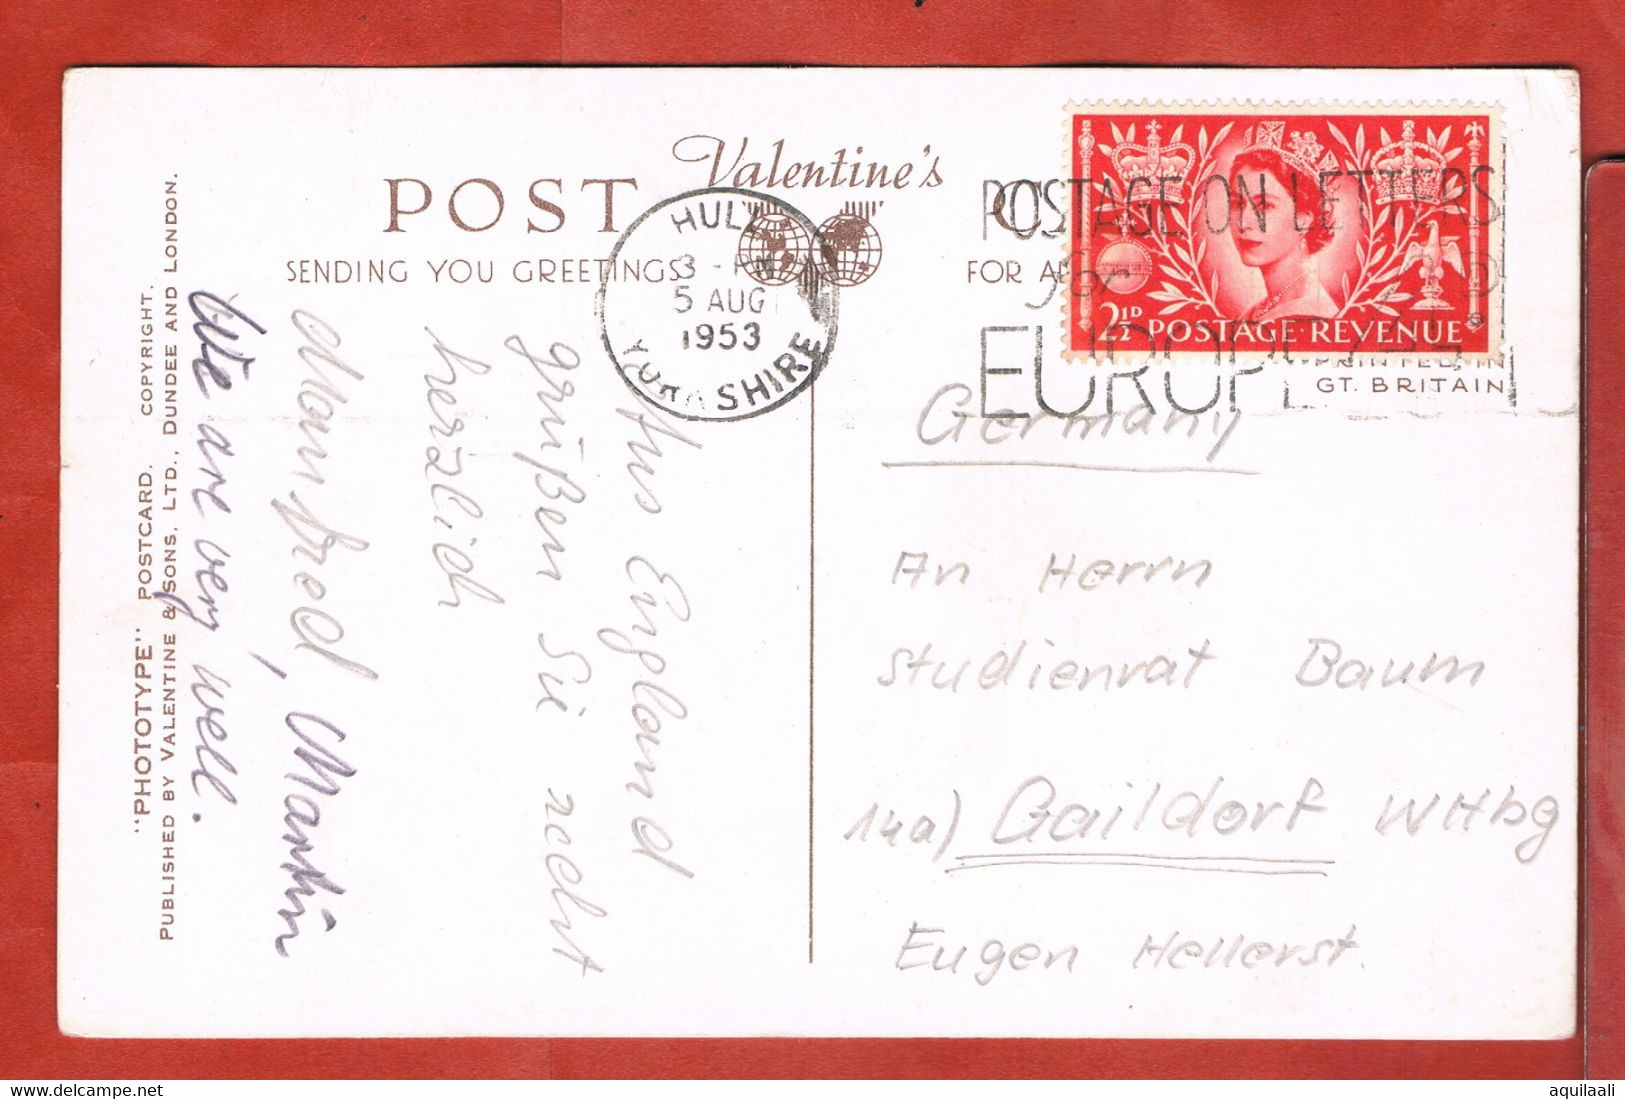 Valentine's
POST
SENDING YOU GREETINGS
FOR
HULL
3 - PM
5 AUG
1953
YORKSHIRE
POSTAGE ON LETTERS
for
EUROPE
2½D POSTAGE REVENUE
PRINTED IN
GT. BRITAIN
Aus England
grüßen Sie recht
herzlich
Manfred, Martin
We are very well.
"PHOTOTYPE" POSTCARD. COPYRIGHT.
PUBLISHED BY VALENTINE & SONS, LTD., DUNDEE AND LONDON.
Germany
An Herrn
Studienrat Baum
14a) Gaildorf WHbg
Eugen Hellerst.
aquilaali